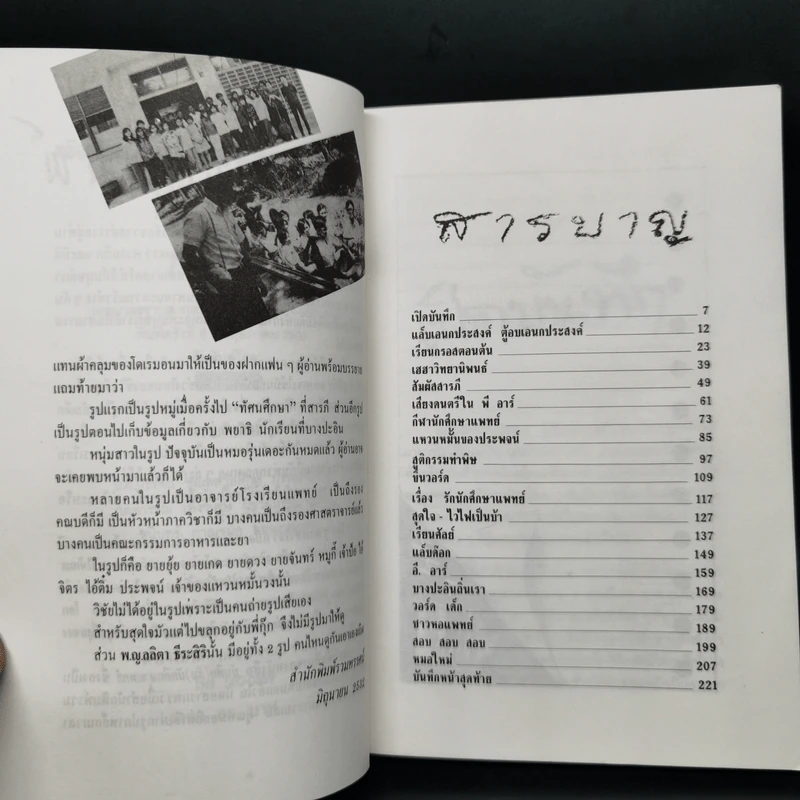 แทนผ้าคลุมของโดเรมอนมาให้เป็นของฝากแฟน ๆ ผู้อ่านพร้อมบรรยาย
แถมท้ายมาว่า
รูปแรกเป็นรูปหมู่เมื่อครั้งไป “ทัศนศึกษา” ที่สารภี ส่วนอีกรูป
เป็นรูปตอนไปเก็บข้อมูลเกี่ยวกับ พยาธิ นักเรียนที่บางปะอิน
หนุ่มสาวในรูป ปัจจุบันเป็นหมอรุ่นเดอะกันหมดแล้ว ผู้อ่านอาจ
จะเคยพบหน้ามาแล้วก็ได้
หลายคนในรูปเป็นอาจารย์โรงเรียนแพทย์ เป็นถึงรอง
คณบดีก็มี เป็นหัวหน้าภาควิชาก็มี บางคนเป็นถึงรองศาสตราจารย์แล้ว
บางคนเป็นคณะกรรมการอาหารและยา
ในรูปก็คือ ยายยุ้ย ยายเกด ยายดวง ยายจันทร์ หมูกี้ เจ้าป้อ ไอ้
จิตร ไอ้ติ่ม ประพจน์ เจ้าของแหวนหมั้นวงนั้น
วิชัยไม่ได้อยู่ในรูปเพราะเป็นคนถ่ายรูปเสียเอง
สำหรับสุดใจมัวแต่ไปขลุกอยู่กับพี่กุ๊ก จึงไม่มีรูปมาให้ดู
ส่วน พ.ญ.ลลิตา ธีระสิรินั้น มีอยู่ทั้ง 2 รูป คนไหนดูกันเอาเอง
สำนักพิมพ์รวมทรรศน์
มิถุนายน
สารบาญ
เปิดบันทึก 7
แล็บเอนกประสงค์ ตู้อบเอนกประสงค์ 12
เรียนกรอสตอนต้น 23
เฮฮาวิทยานิพนธ์ 39
สัมผัสสารภี 49
เสียงดนตรีใน พี อาร์ 61
กีฬานักศึกษาแพทย์ 73
แหวนหมั้นของประพจน์ 85
สูติกรรมทำพิษ 97
ขึ้นวอร์ด 109
เรื่อง รักนักศึกษาแพทย์ 117
สุดใจ - ไวไฟเป็นบ้า 127
เรียนศัลย์ 137
แล็บด๊อก 149
อี. อาร์ 159
บางปะอินถิ่นเรา 169
วอร์ด เด็ก 179
ชาวหอแพทย์ 189
สอบ สอบ สอบ 199
หมอใหม่ 207
บันทึกหน้าสุดท้าย 221